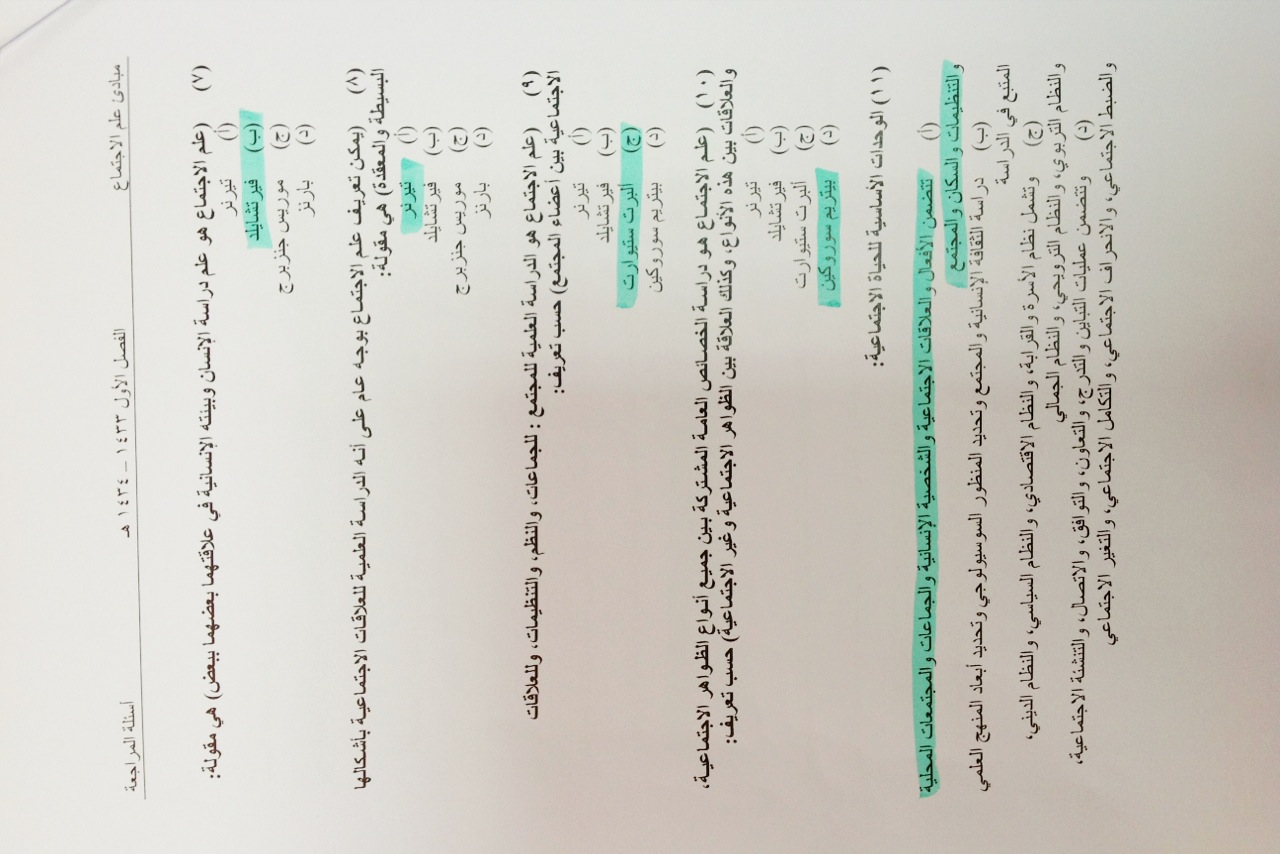 مبادئ علم الاجتماع الفصل الأول ١٤٣٣ – ١٤٣٤ هـ أسئلة المراجعة
(٧) (علم الاجتماع هو علم دراسة الإنسان وبيئته الإنسانية في علاقتهما بعضهما ببعض) هي مقولة:
(أ) تيرنر
(ب) فيرتشايلد
(ج) موريس جنزبرج
(د) بارنز
(٨) (يمكن تعريف علم الاجتماع بوجه عام على أنه الدراسة العلمية للعلاقات الاجتماعية بأشكالها
البسيطة والمعقدة) هي مقولة:
(أ) تيرنر
(ب) فيرتشايلد
(ج) موريس جنزبرج
(د) بارنز
(٩) (علم الاجتماع هو الدراسة العلمية للمجتمع : للجماعات، والنظم، والتنظيمات، وللعلاقات
الاجتماعية بين أعضاء المجتمع) حسب تعريف:
(أ) تيرنر
(ب) فيرتشايلد
(ج) ألبرت ستيوارت
(د) بيتريم سوروكين
(١٠) (علم الاجتماع هو دراسة الخصائص العامة المشتركة بين جميع أنواع الظواهر الاجتماعية،
والعلاقات بين هذه الأنواع، وكذلك العلاقة بين الظواهر الاجتماعية وغير الاجتماعية) حسب تعريف:
(أ) تيرنر
(ب) فيرتشايلد
(ج) ألبرت ستيوارت
(د) بيتريم سوروكين
(١١) الوحدات الأساسية للحياة الاجتماعية:
(أ) تتضمن الأفعال والعلاقات الاجتماعية والشخصية الإنسانية والجماعات والمجتمعات المحلية
والتنظيمات والسكان والمجتمع
(ب) دراسة الثقافة الإنسانية والمجتمع وتحديد المنظور السوسيولوجي وتحديد أبعاد المنهج العلمي
المتبع في الدراسة
(ج) وتشمل نظام الأسرة والقرابة، والنظام الاقتصادي، والنظام السياسي، والنظام الديني،
والنظام التربوي، والنظام الترويحي، والنظام الجمالي
(د) وتتضمن عمليات التباين والتدرج، والتعاون، والتوافق، والاتصال، والتنشئة الاجتماعية،
والضبط الاجتماعي، والانحراف الاجتماعي، والتكامل الاجتماعي، والتغير الاجتماعي